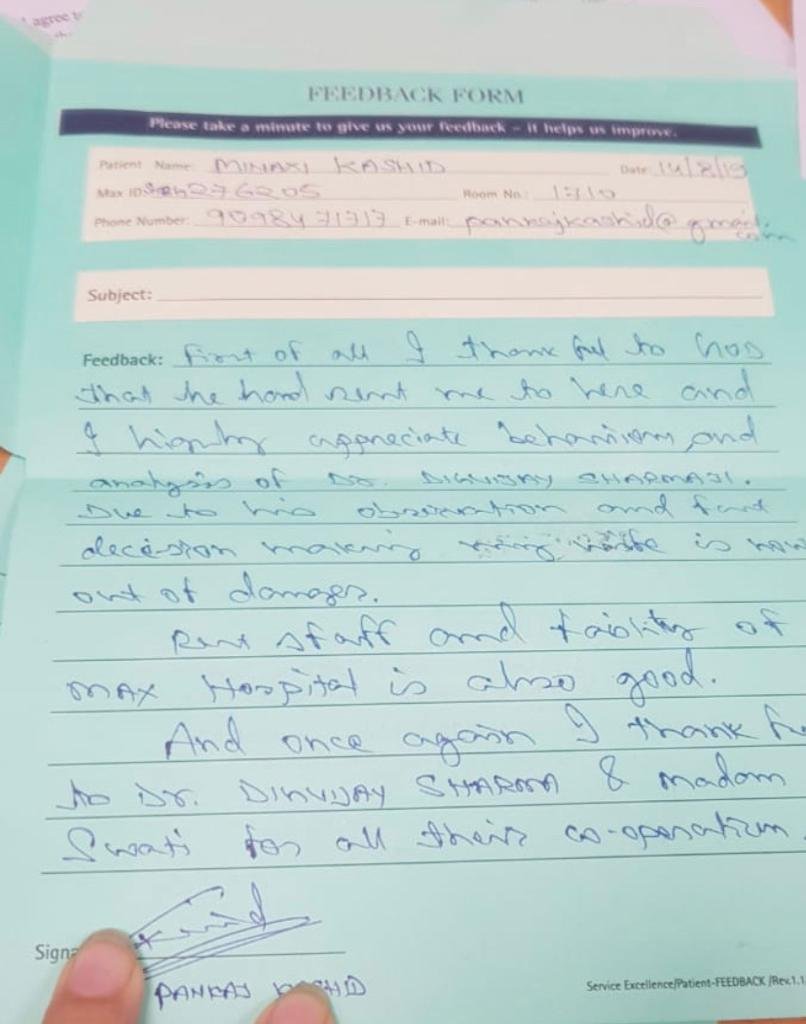 agree t
FEEDBACK FORM
Please take a minute to give us your feedback - it helps us improve.
Patient Name: MINAXI KASHID Date: 14/8/19
Max ID: 276205 Room No.: 1710
Phone Number: 9098471717 E-mail: pannajkashid@gmail.
com
Subject:
Feedback: First of all I thankful to
that he hard sent me to here and
I highly appreciate behaviour and
analysis of Dr. DIGVIJAY SHARMAJI.
Due to his observation and fast
decision making wife is now
out of danger.
Rest staff and facility of
MAX Hospital is also good.
And once again I thank
to Dr. DIGVIJAY SHARMA & madam
Swati for all their co-operation.
Signa
PANKAJ KASHID
Service Excellence/Patient-FEEDBACK /Rev.1.1